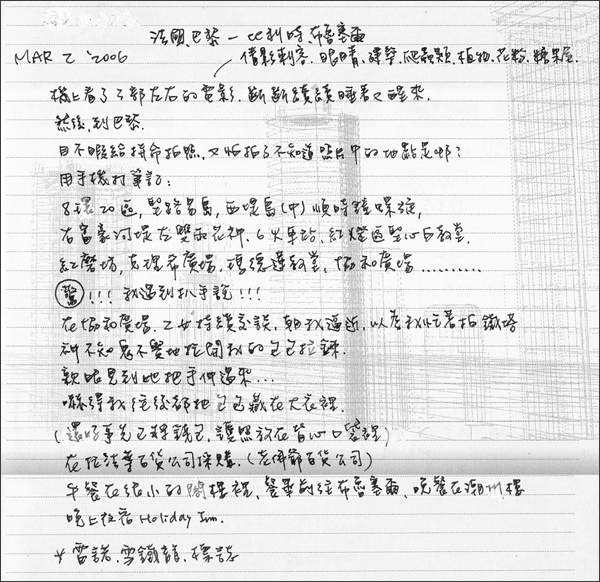 法國.巴黎 — 比利時.布魯塞爾
MAR 2 '2006
借影刺客.眼睛.建築.爬蟲類.植物.花粉.糖果屋.
機上看了3部左右的電影.斷斷續續睡著又醒來.
然後到巴黎.
目不暇給拼命拍照.又怕拍了不知道照片中的地點是哪?
用手機打筆記:
8環20區,聖路易島,西堤島(中)順時鐘螺旋,
右富豪河堤左雙雨花神.6火車站.紅燈區聖心白教堂.
紅磨坊,克理希廣場,瑪德蓮教堂,協和廣場..........
驚!!!我遇到扒手說!!!
在協和廣場.2女持續交談,朝我逼近,以為我忙著拍鐵塔
神不知鬼不覺地拉開我的包包拉鍊.
親眼見到她把手伸過來...
嚇得我往後都把包包藏在大衣裡.
(還好事先已將錢包,護照放在背心口袋裡)
在拉法葉百貨公司採購.(老佛爺百貨公司)
午餐在很小的閣樓裡,餐畢前往布魯塞爾.晚餐在潮州樓
晚上夜宿 Holiday Inn.
* 雷諾.雪鐵龍.標誌